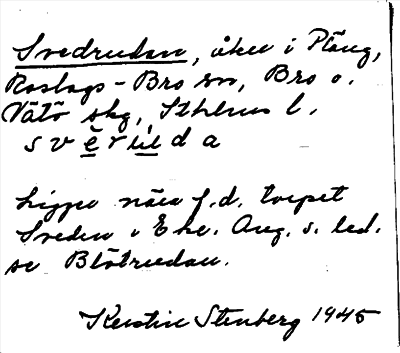 Svedrudan, åker i Pläng,
Roslags-Bro sn, Bro o.
Vätö skg, Sthlms l.
svèruda
Ligger nära f.d. torpet
Sveden i Eke. Ang. s. led.
se Blötrudan.
Kerstin Stenberg 1945